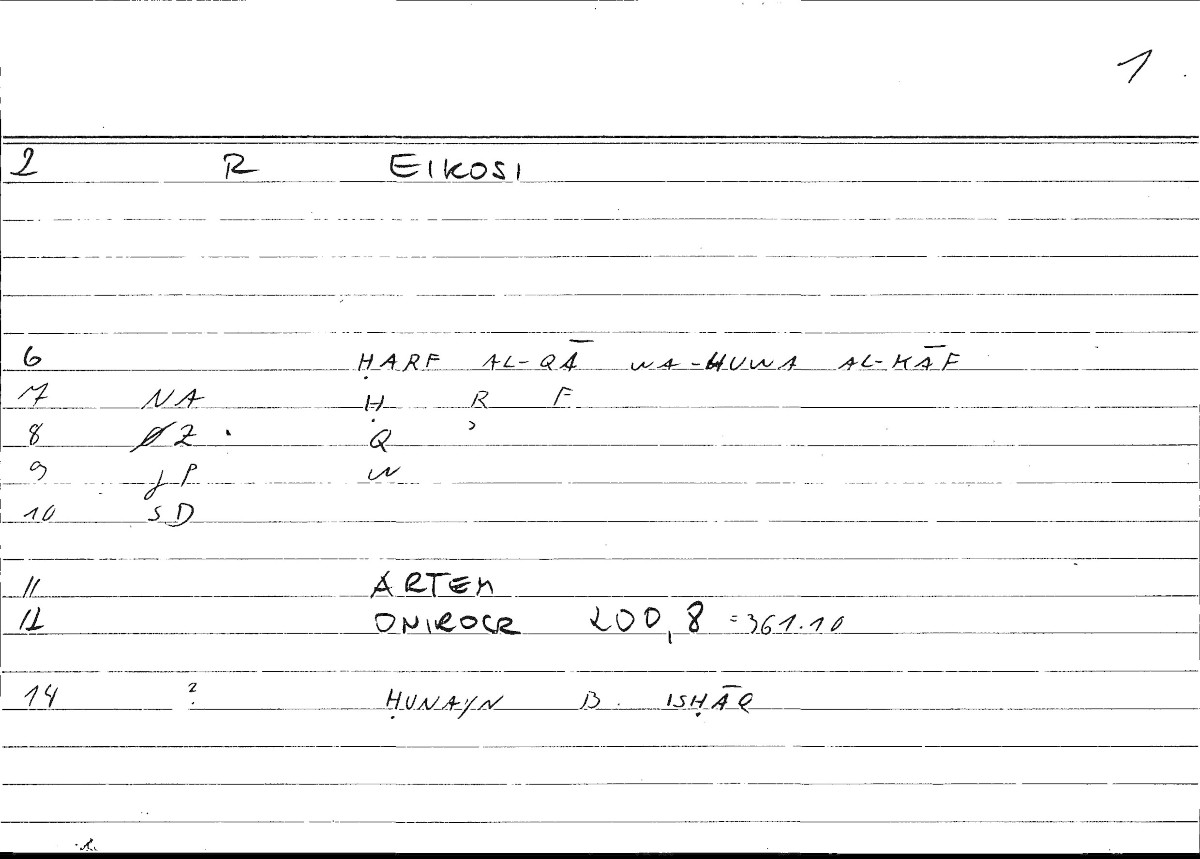 1
2 R EIKOSI
6 ḤARF AL-QĀ WA-HUWA AL-KĀF
7 NA Ḥ R F
8 ØZ . Q ʾ
9 JP W
10 SD
11 ARTEM
12 ONIROCR 200,8 =361.10
14 ? ḤUNAYN B. ISḤĀQ